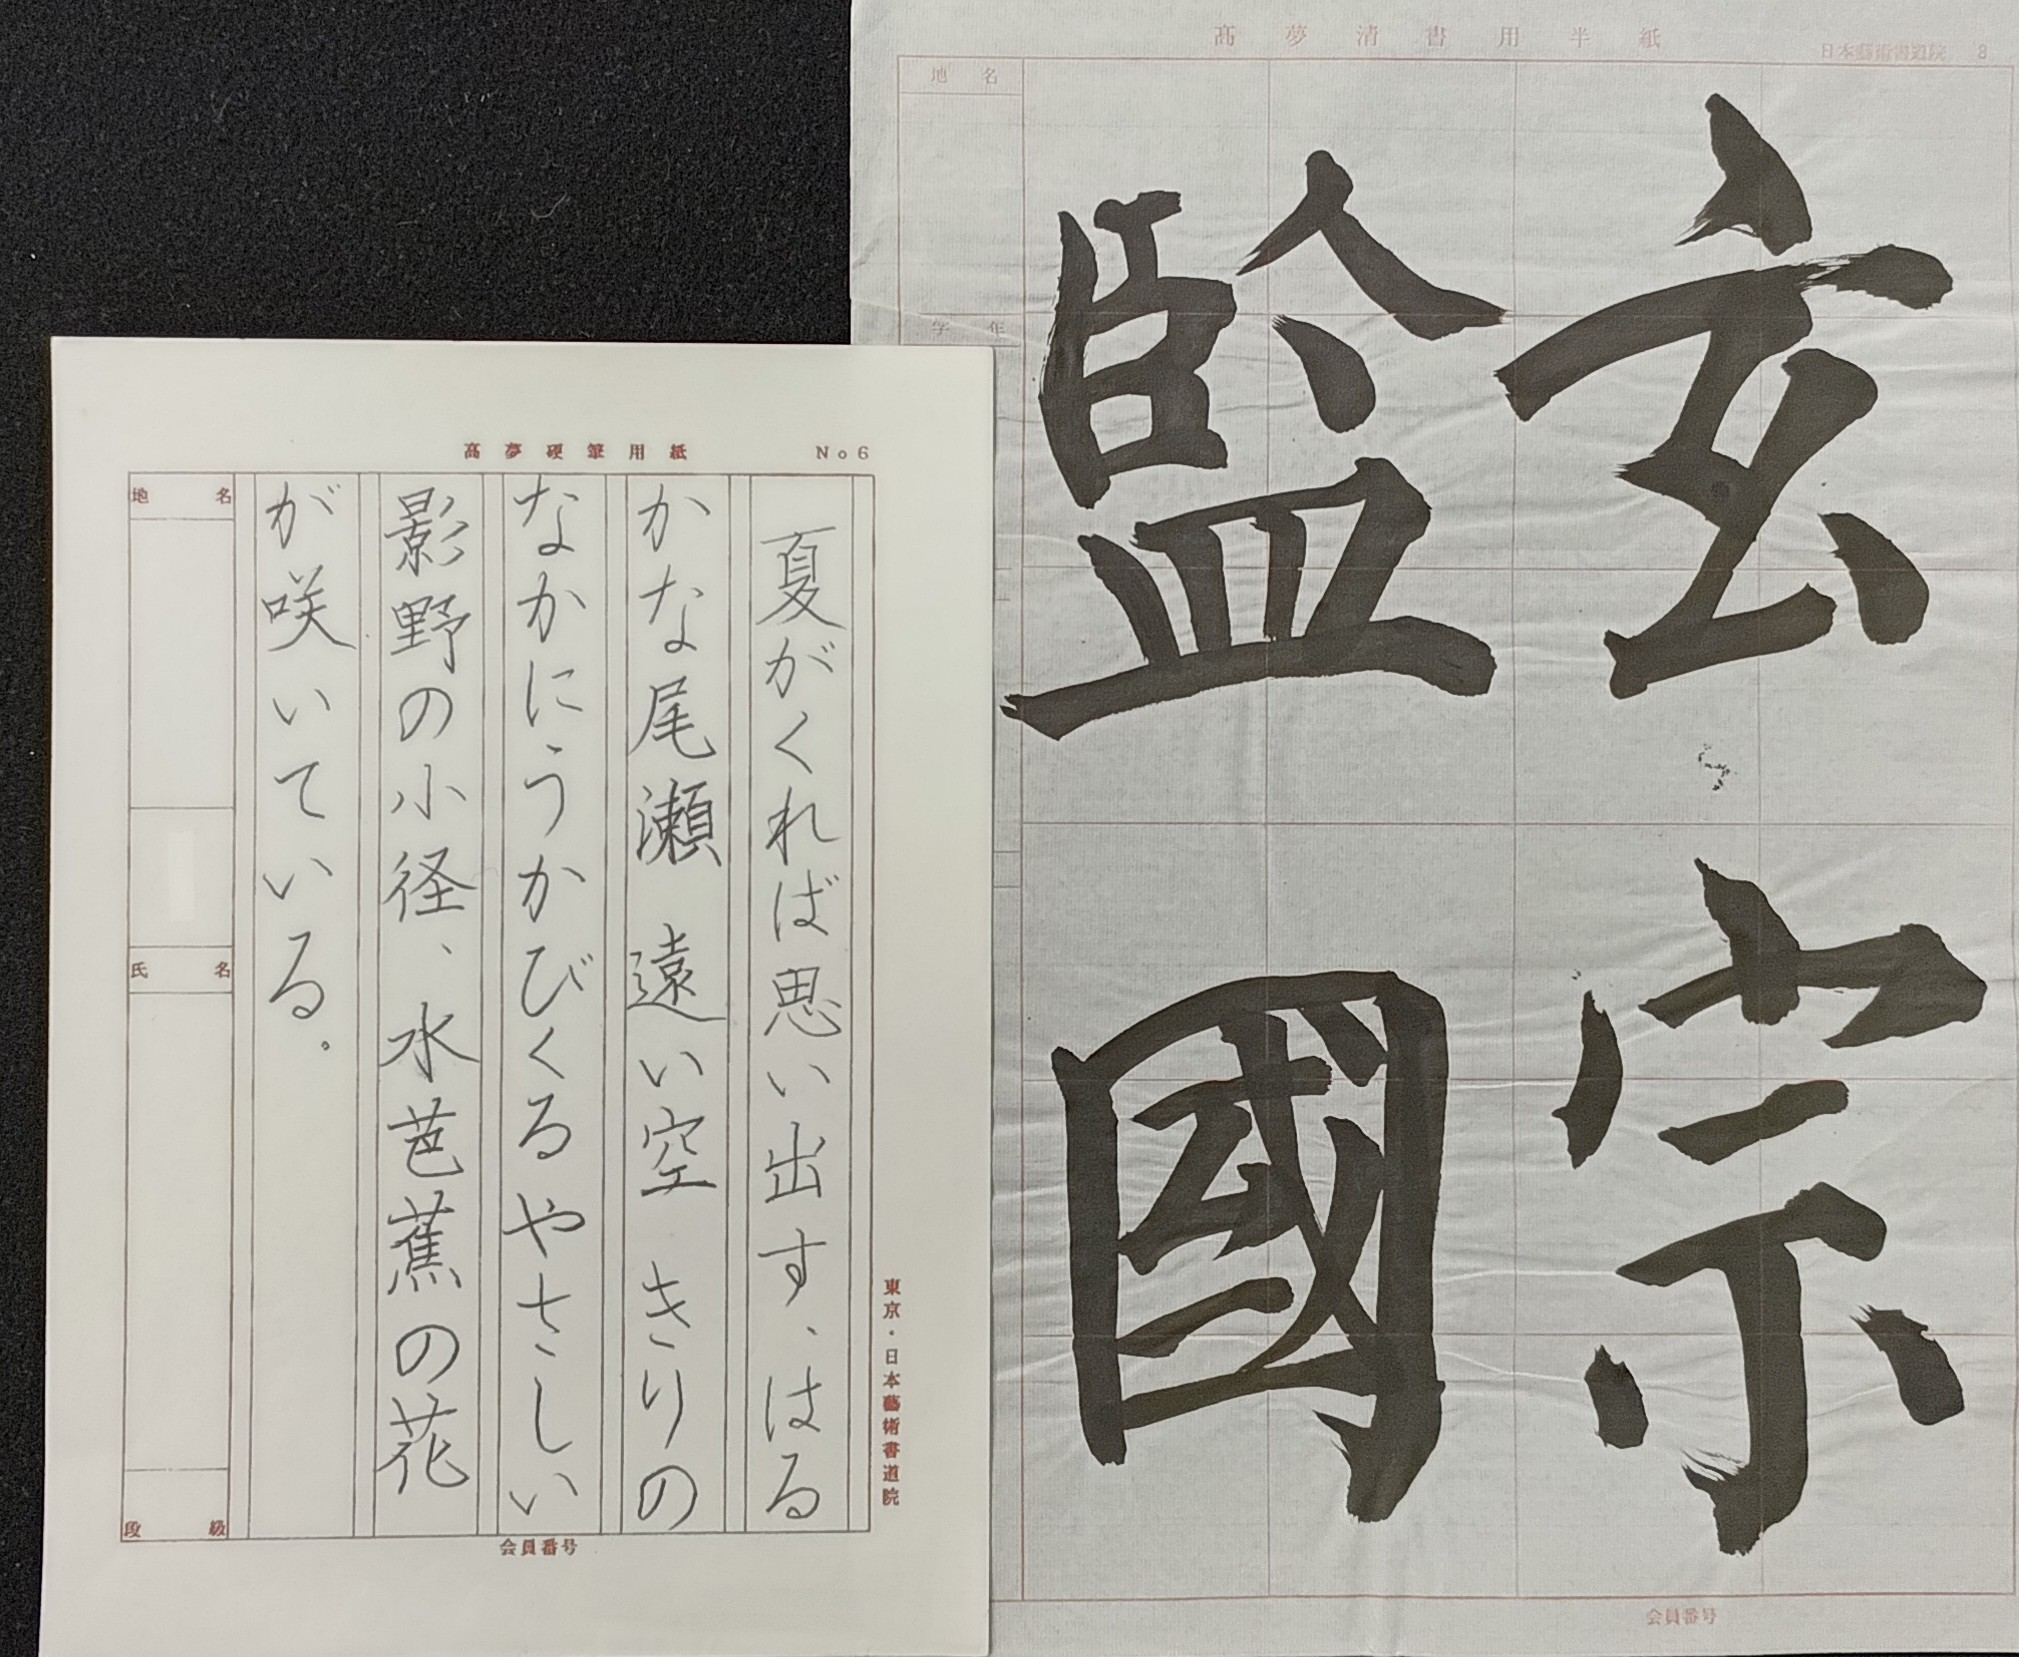 高夢清書用半紙
日本藝術書道院 8
玄宗
監國
地名
学年
会員番号
高夢硬筆用紙
No6
夏がくれば思い出す、はる
かな尾瀬 遠い空 きりの
なかにうかびくるやさしい
影野の小径、水芭蕉の花
が咲いている。
地名
氏名
段級
会員番号
東京・日本藝術書道院